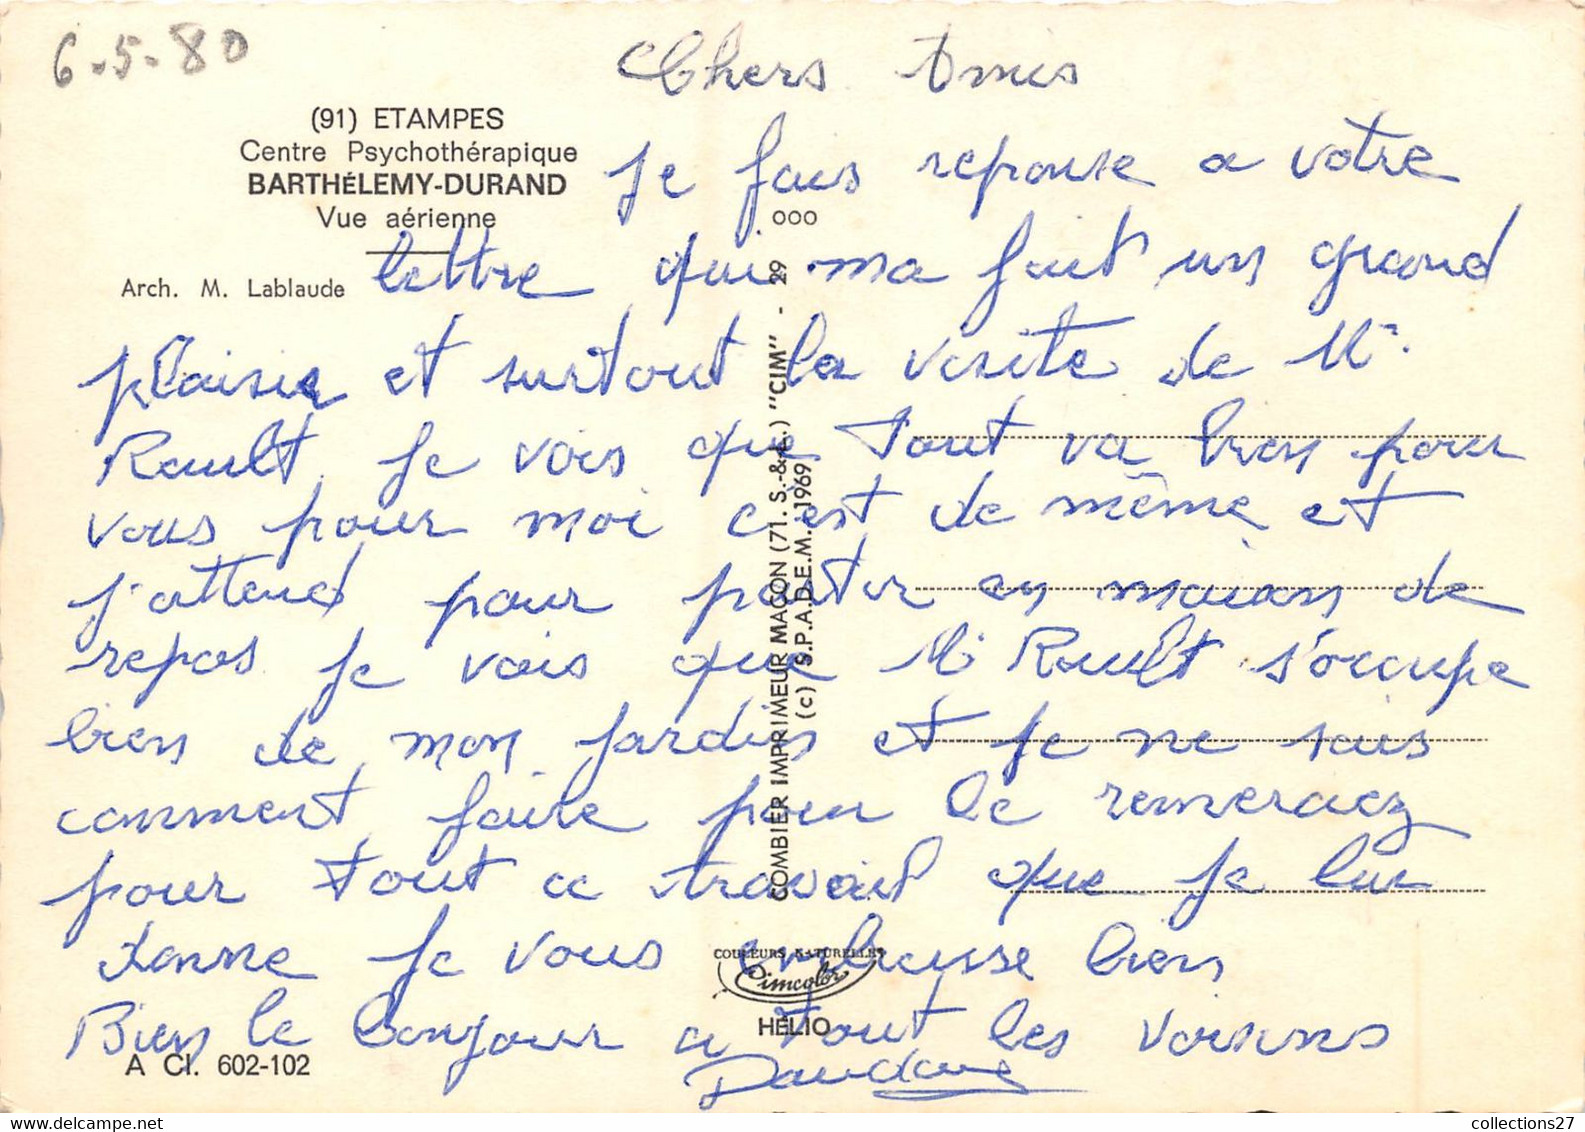 6-5-80
Chers Amis
(91) ETAMPES
Centre Psychothérapique
BARTHÉLEMY-DURAND
Vue aérienne
Arch. M. Lablaude
Je fais reponse a votre
lettre qui ma fait un grand
plaisir et surtout la visite de Mr.
Rault. Je vois que tout va bien pour
vous pour moi c'est de même et
j'attend pour partir en maison de
repos Je vois que Mr Rault s'occupe
bien de mon jardin et je ne sais
comment faire pour le remerciez
pour tout ce travail que je lui
donne Je vous embrasse bien
Bien le bonjour a tout les voisins
ooo
COMBIER IMPRIMEUR MACON (71. S.-&-L.) "CIM" - 29
(c) S.P.A.D.E.M. 1969
COULEURS NATURELLES
Cimcolor
HÉLIO
A Cl. 602-102
collections27